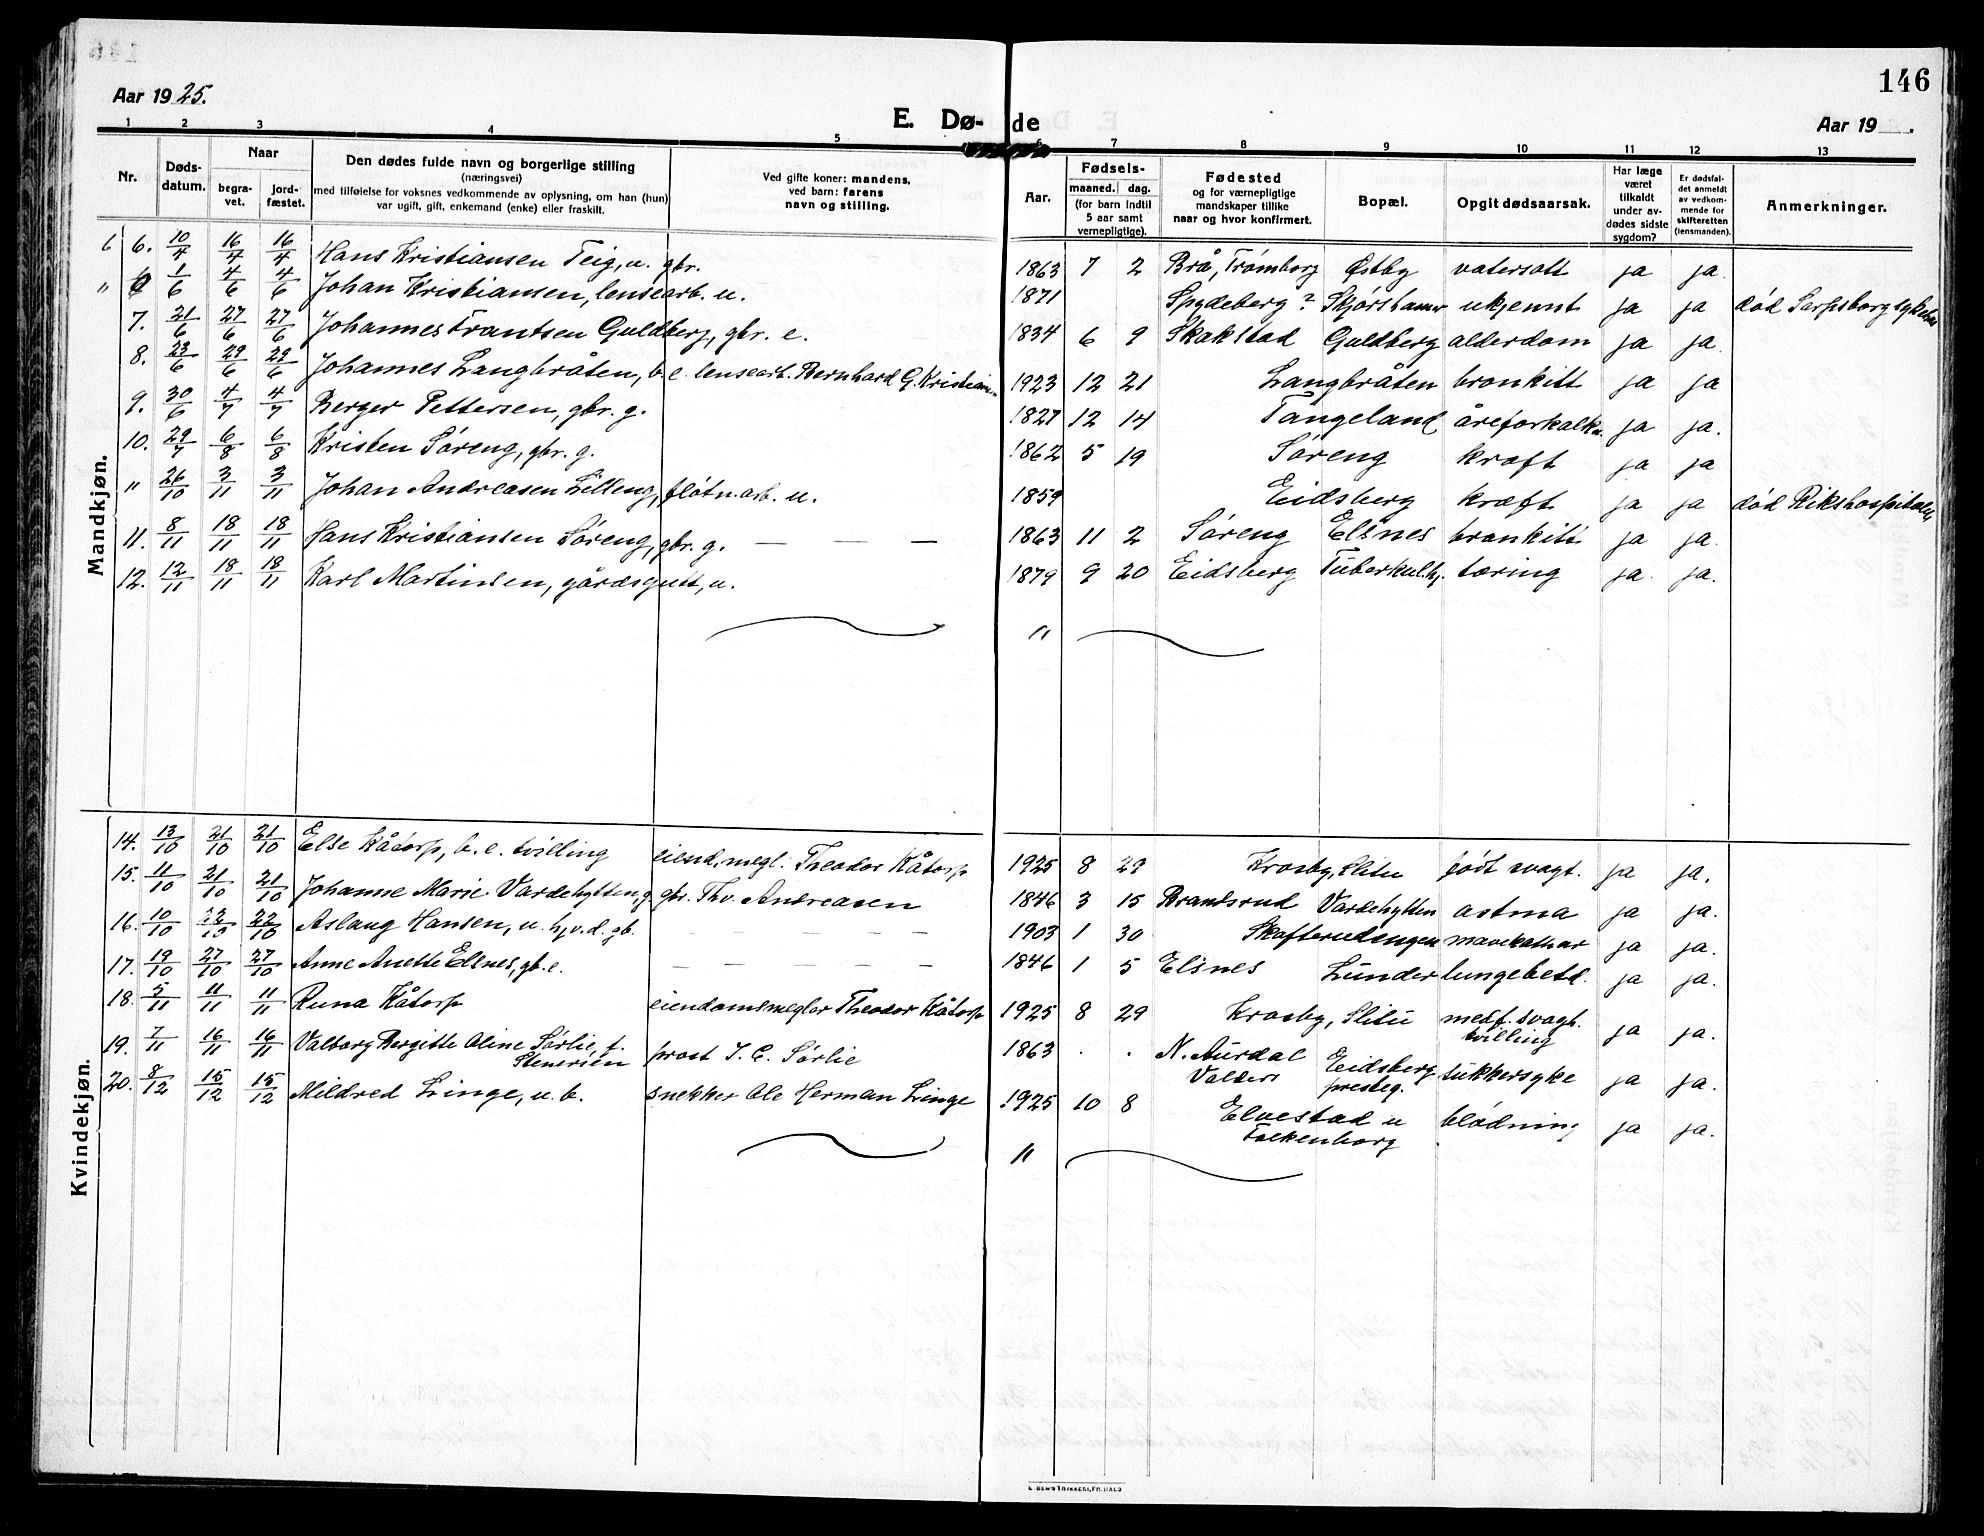 146
Aar 1925.
E. Dø-de
Aar 19 .
1 2 3 4 5 6 7 8 9 10 11 12 13
Nr.
Døds-
datum.
Naar
begra-
vet.
jord-
fæstet.
Den dødes fulde navn og borgerlige stilling
(næringsvei)
med tilføielse for voksnes vedkommende av oplysning, om han (hun)
var ugift, gift, enkemand (enke) eller fraskilt.
Ved gifte koner: mandens,
ved barn: farens
navn og stilling.
Aar.
Fødsels-
maaned. dag.
(for barn indtil
5 aar samt
vernepligtige).
Fødested
og for værnepligtige
mandskaper tillike
naar og hvor konfirmert.
Bopæl.
Opgit dødsaarsak.
Har læge
været
tilkaldt
under av-
dødes sidste
sygdom?
Er dødsfal-
det anmeldt
av vedkom-
mende for
skifteretten
(lensmanden).
Anmerkninger.
Mandkjøn.
6 6. 10/4 16/4 16/4 Hans Kristiansen Teig, u. gbr. 1863 7 2 Brå, Trømborg Østby vatersott ja ja.
" 1/6 4/6 4/6 Johan Kristiansen, lensearb. u. 1871 Spydeberg? ukjennt ja ja død Sarpsborg
7. 21/6 27/6 27/6 Johannes Frantsen Guldberg, gbr. e. 1834 6 9 Skakstad Guldberg alderdom ja ja.
8. 23/6 29/6 29/6 Johannes Langbråten, b. e. lensearb. Bernhard G. Kristian 1923 12 21 Langbråten bronkitt ja ja
9. 30/6 4/7 4/7 Berger Pettersen, gbr. g. 1827 12 14 Tangeland åreforkalkn. ja ja.
10. 29/7 6/8 6/8 Kristen Søreng, gbr. g. 1862 5 19 Søreng kræft ja ja
" 26/10 3/11 3/11 Johan Andreasen Lilleng, fløtn.arb. u. 1859 Eidsberg kræft ja ja død Rikshospitalet
11. 8/11 18/11 18/11 Hans Kristiansen Søreng, gbr. g. — — — 1863 11 2 Søreng Elsnes bronkitt ja ja.
12. 12/11 18/11 18/11 Karl Martinsen, gårdsgutt, u. 1879 9 20 Eidsberg Tuberkul.hj. tæring ja. ja.
11
Kvindekjøn.
14. 13/10 21/10 21/10 Else Kåtorp, b. e. tvilling eiend.megl. Theodor Kåtorp 1925 8 29 Krosby, Slitu født svagt. ja ja.
15. 11/10 21/10 21/10 Johanne Marie Vardehytten, g. gbr. Thv. Andreasen 1846 3 15 Brandsrud Vardehytten astma ja ja.
16. 10/10 22/10 22/10 Aslaug Hansen, u. hj.v.d. gb. — — — — 1903 1 30 Skofterudengen mavekatarr ja ja.
17. 19/10 27/10 27/10 Anne Anette Elsnes, gb. e. — — — — 1846 1 5 Elsnes Lunder lungebetd. ja ja.
18. 5/11 11/11 11/11 Runa Kåtorp eiendomsmegler Theodor Kåtorp 1925 8 29 Krosby, Slitu medf. svagh.
tvilling ja ja.
19. 7/11 16/11 16/11 Valborg Bergitte Oline Sørlie f.
Stenersen prost S. E. Sørlie 1863 . . N. Aurdal
Valders Eidsberg
presteg. sukkersyke ja ja.
20. 8/12 15/12 15/12 Mildred Linge, u. b. snekker Ole Herman Linge 1925 10 8 Elvestad u
Folkenborg blødning ja ja.
11